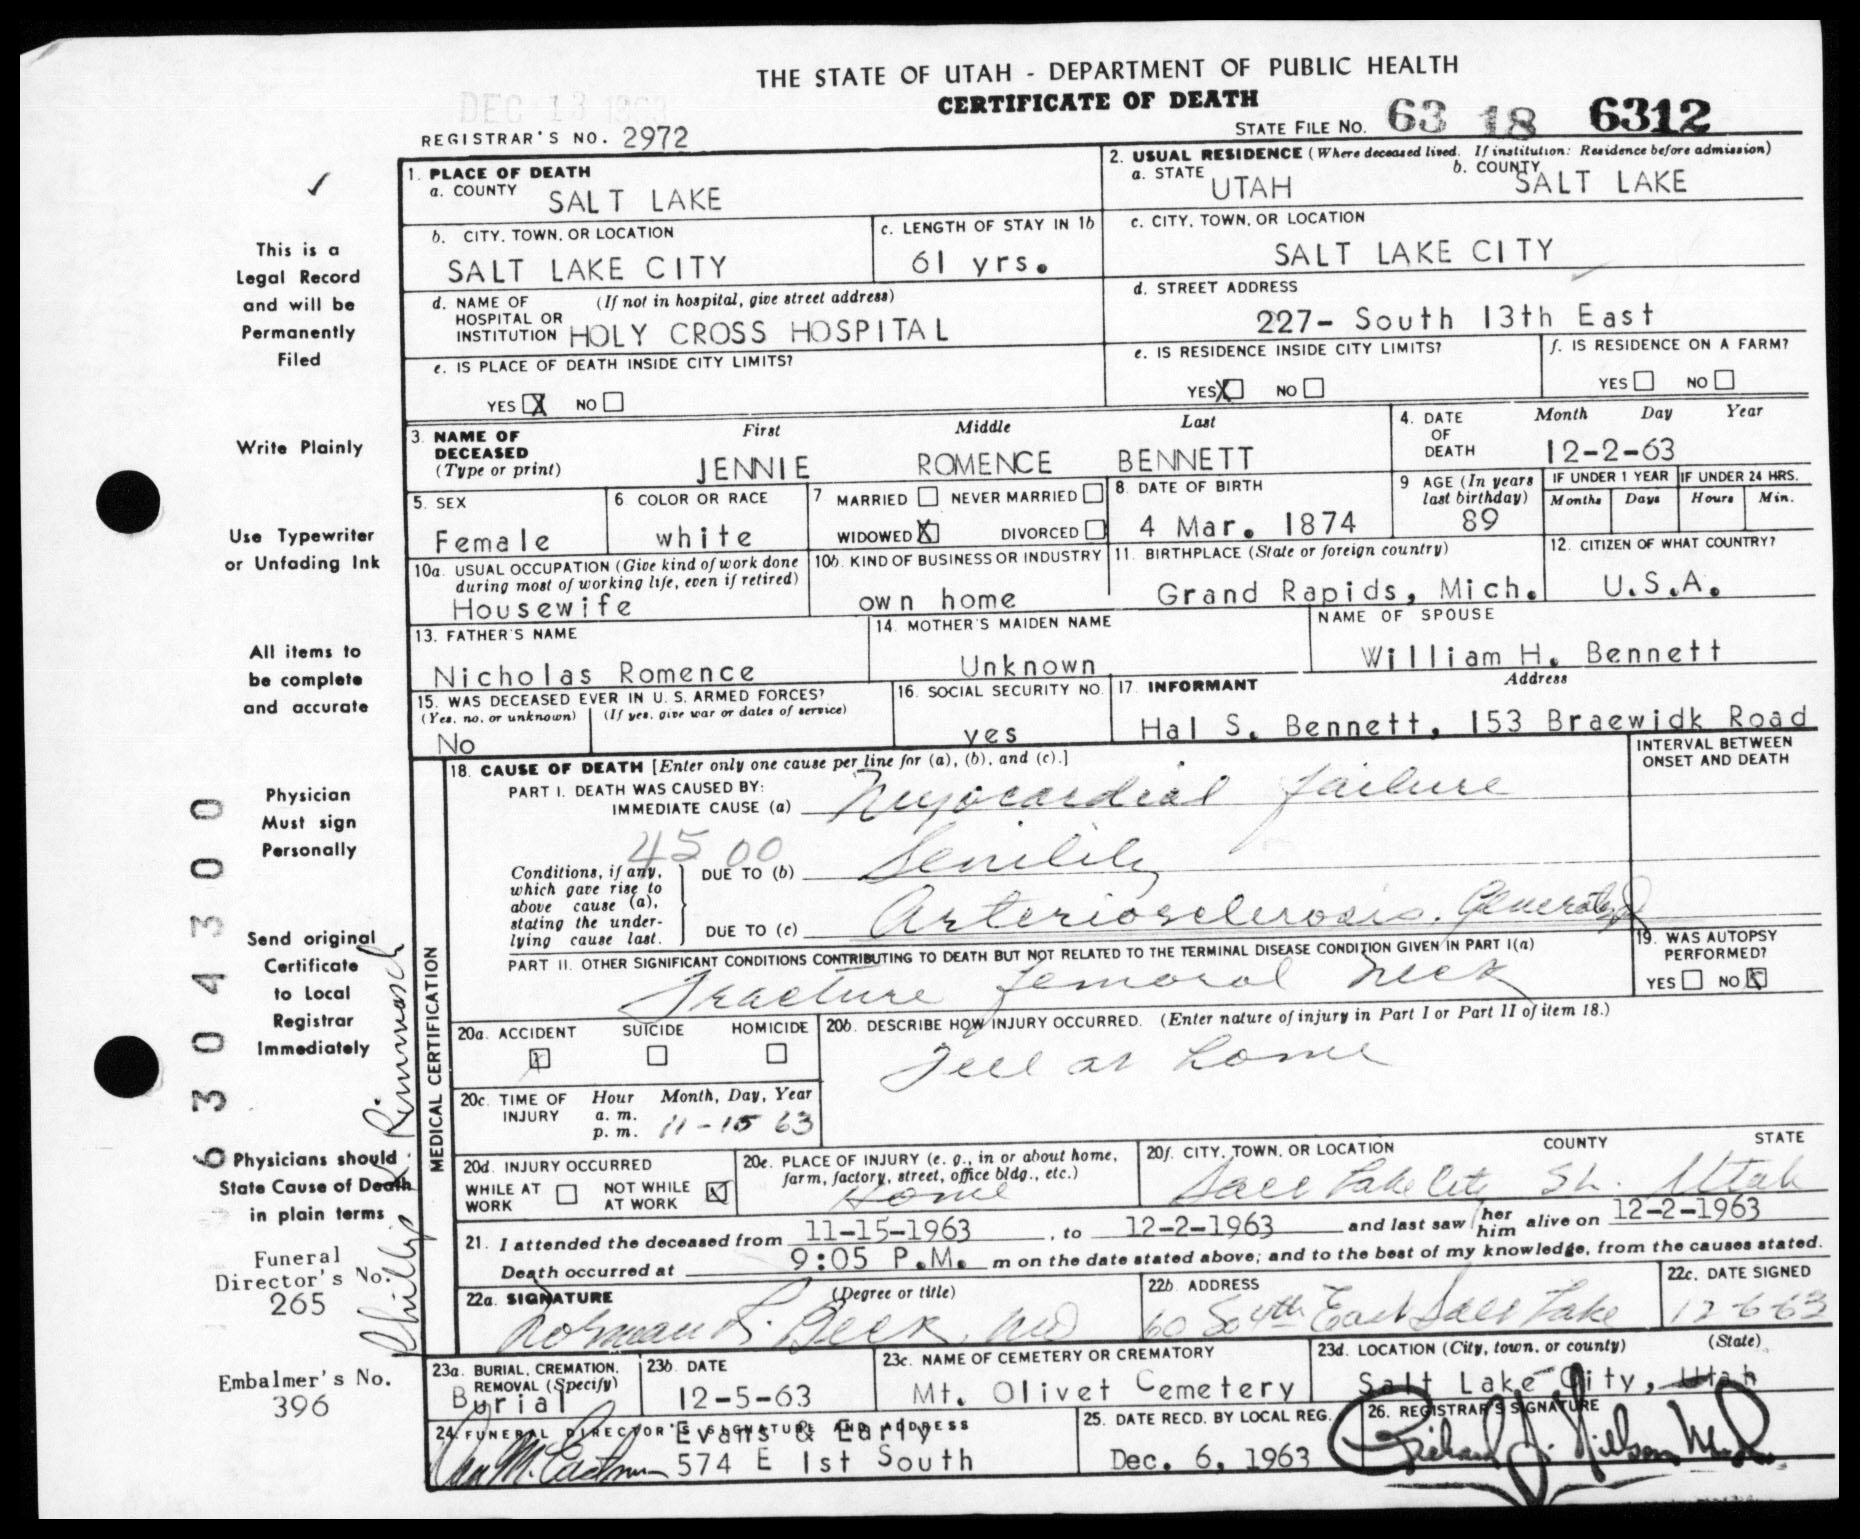 THE STATE OF UTAH - DEPARTMENT OF PUBLIC HEALTH
DEC 13 1963
CERTIFICATE OF DEATH
REGISTRAR'S NO. 2972
STATE FILE NO. 63 18 6312
1. PLACE OF DEATH
a. COUNTY SALT LAKE
2. USUAL RESIDENCE (Where deceased lived. If institution: Residence before admission)
a. STATE UTAH b. COUNTY SALT LAKE
b. CITY, TOWN, OR LOCATION
SALT LAKE CITY
c. LENGTH OF STAY IN 1b
61 yrs.
c. CITY, TOWN, OR LOCATION
SALT LAKE CITY
d. NAME OF HOSPITAL OR INSTITUTION (If not in hospital, give street address)
HOLY CROSS HOSPITAL
d. STREET ADDRESS
227- South 13th East
e. IS PLACE OF DEATH INSIDE CITY LIMITS?
YES X NO
e. IS RESIDENCE INSIDE CITY LIMITS?
YES X NO
f. IS RESIDENCE ON A FARM?
YES NO
3. NAME OF DECEASED (Type or print)
First Middle Last
JENNIE ROMENCE BENNETT
4. DATE OF DEATH
Month Day Year
12-2-63
5. SEX
Female
6 COLOR OR RACE
white
7 MARRIED NEVER MARRIED
WIDOWED X DIVORCED
8. DATE OF BIRTH
4 Mar. 1874
9 AGE (In years last birthday)
89
IF UNDER 1 YEAR
Months Days
IF UNDER 24 HRS.
Hours Min.
10a. USUAL OCCUPATION (Give kind of work done during most of working life, even if retired)
Housewife
10b. KIND OF BUSINESS OR INDUSTRY
own home
11. BIRTHPLACE (State or foreign country)
Grand Rapids, Mich.
12. CITIZEN OF WHAT COUNTRY?
U.S.A.
13. FATHER'S NAME
Nicholas Romence
14. MOTHER'S MAIDEN NAME
Unknown
NAME OF SPOUSE
William H. Bennett
15. WAS DECEASED EVER IN U. S. ARMED FORCES?
(Yes, no, or unknown) (If yes, give war or dates of service)
No
16. SOCIAL SECURITY NO.
yes
17. INFORMANT Address
Hal S. Bennett, 153 Braewidk Road
MEDICAL CERTIFICATION
18. CAUSE OF DEATH [Enter only one cause per line for (a), (b), and (c).]
INTERVAL BETWEEN ONSET AND DEATH
PART I. DEATH WAS CAUSED BY:
IMMEDIATE CAUSE (a) Myocardial failure
4500
Conditions, if any, which gave rise to above cause (a), stating the underlying cause last.
DUE TO (b) Senility
DUE TO (c) Arteriosclerosis. Generalized
PART II. OTHER SIGNIFICANT CONDITIONS CONTRIBUTING TO DEATH BUT NOT RELATED TO THE TERMINAL DISEASE CONDITION GIVEN IN PART I(a)
Fracture femoral neck
19. WAS AUTOPSY PERFORMED?
YES NO X
20a. ACCIDENT SUICIDE HOMICIDE
X
20b. DESCRIBE HOW INJURY OCCURRED. (Enter nature of injury in Part I or Part II of item 18.)
Fell at home
20c. TIME OF INJURY
Hour Month, Day, Year
a. m.
p. m. 11-15 63
20d. INJURY OCCURRED
WHILE AT WORK NOT WHILE AT WORK X
20e. PLACE OF INJURY (e. g., in or about home, farm, factory, street, office bldg., etc.)
Home
20f. CITY, TOWN, OR LOCATION COUNTY STATE
Salt Lake City SL. Utah
21. I attended the deceased from 11-15-1963, to 12-2-1963 and last saw her/him alive on 12-2-1963
Death occurred at 9:05 P.M. m on the date stated above; and to the best of my knowledge, from the causes stated.
22a. SIGNATURE (Degree or title)
Norman R. Beck, MD
22b. ADDRESS
60 So 4th East Salt Lake
22c. DATE SIGNED
12-6-63
23a. BURIAL, CREMATION, REMOVAL (Specify)
Burial
23b. DATE
12-5-63
23c. NAME OF CEMETERY OR CREMATORY
Mt. Olivet Cemetery
23d. LOCATION (City, town, or county) (State)
Salt Lake City, Utah
24. FUNERAL DIRECTOR'S SIGNATURE AND ADDRESS
Evans & Early
574 E 1st South
25. DATE RECD. BY LOCAL REG.
Dec. 6, 1963
26. REGISTRAR'S SIGNATURE
This is a
Legal Record
and will be
Permanently
Filed
Write Plainly
Use Typewriter
or Unfading Ink
All items to
be complete
and accurate
Physician
Must sign
Personally
Send original
Certificate
to Local
Registrar
Immediately
Physicians should
State Cause of Death
in plain terms
Funeral
Director's No.
265
Embalmer's No.
396
6304300